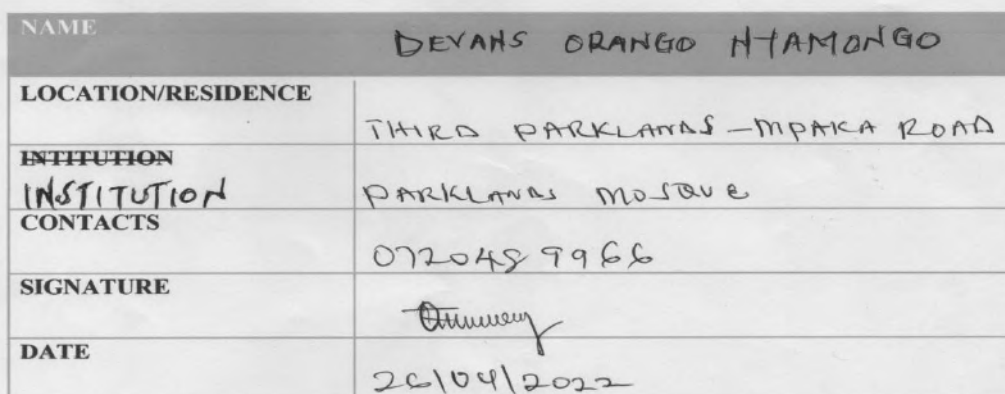 NAME DEVANS ORANGO NYAMONGO
LOCATION/RESIDENCE
THIRD PARKLANDS - MPAKA ROAD
INTITUTION
INSTITUTION PARKLANDS MOSQUE
CONTACTS
0720489966
SIGNATURE
DATE
26/04/2022